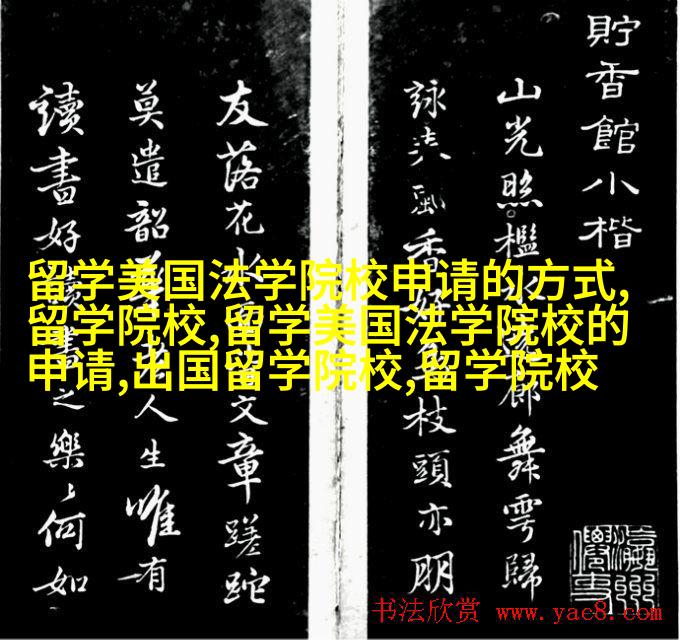 貯香館小楷
山光照檻水繞廊舞雩歸
詠春風香好鳥枝頭亦朋
友落花水面皆文章蹉跎
莫遣韶光老人生唯有
讀書好讀書之樂〻何如
留学美国法学院校申请的方式,
留学院校,留学美国法学院校的
申请,出国留学院校,留学院校
书法欣赏 www.yac8.com